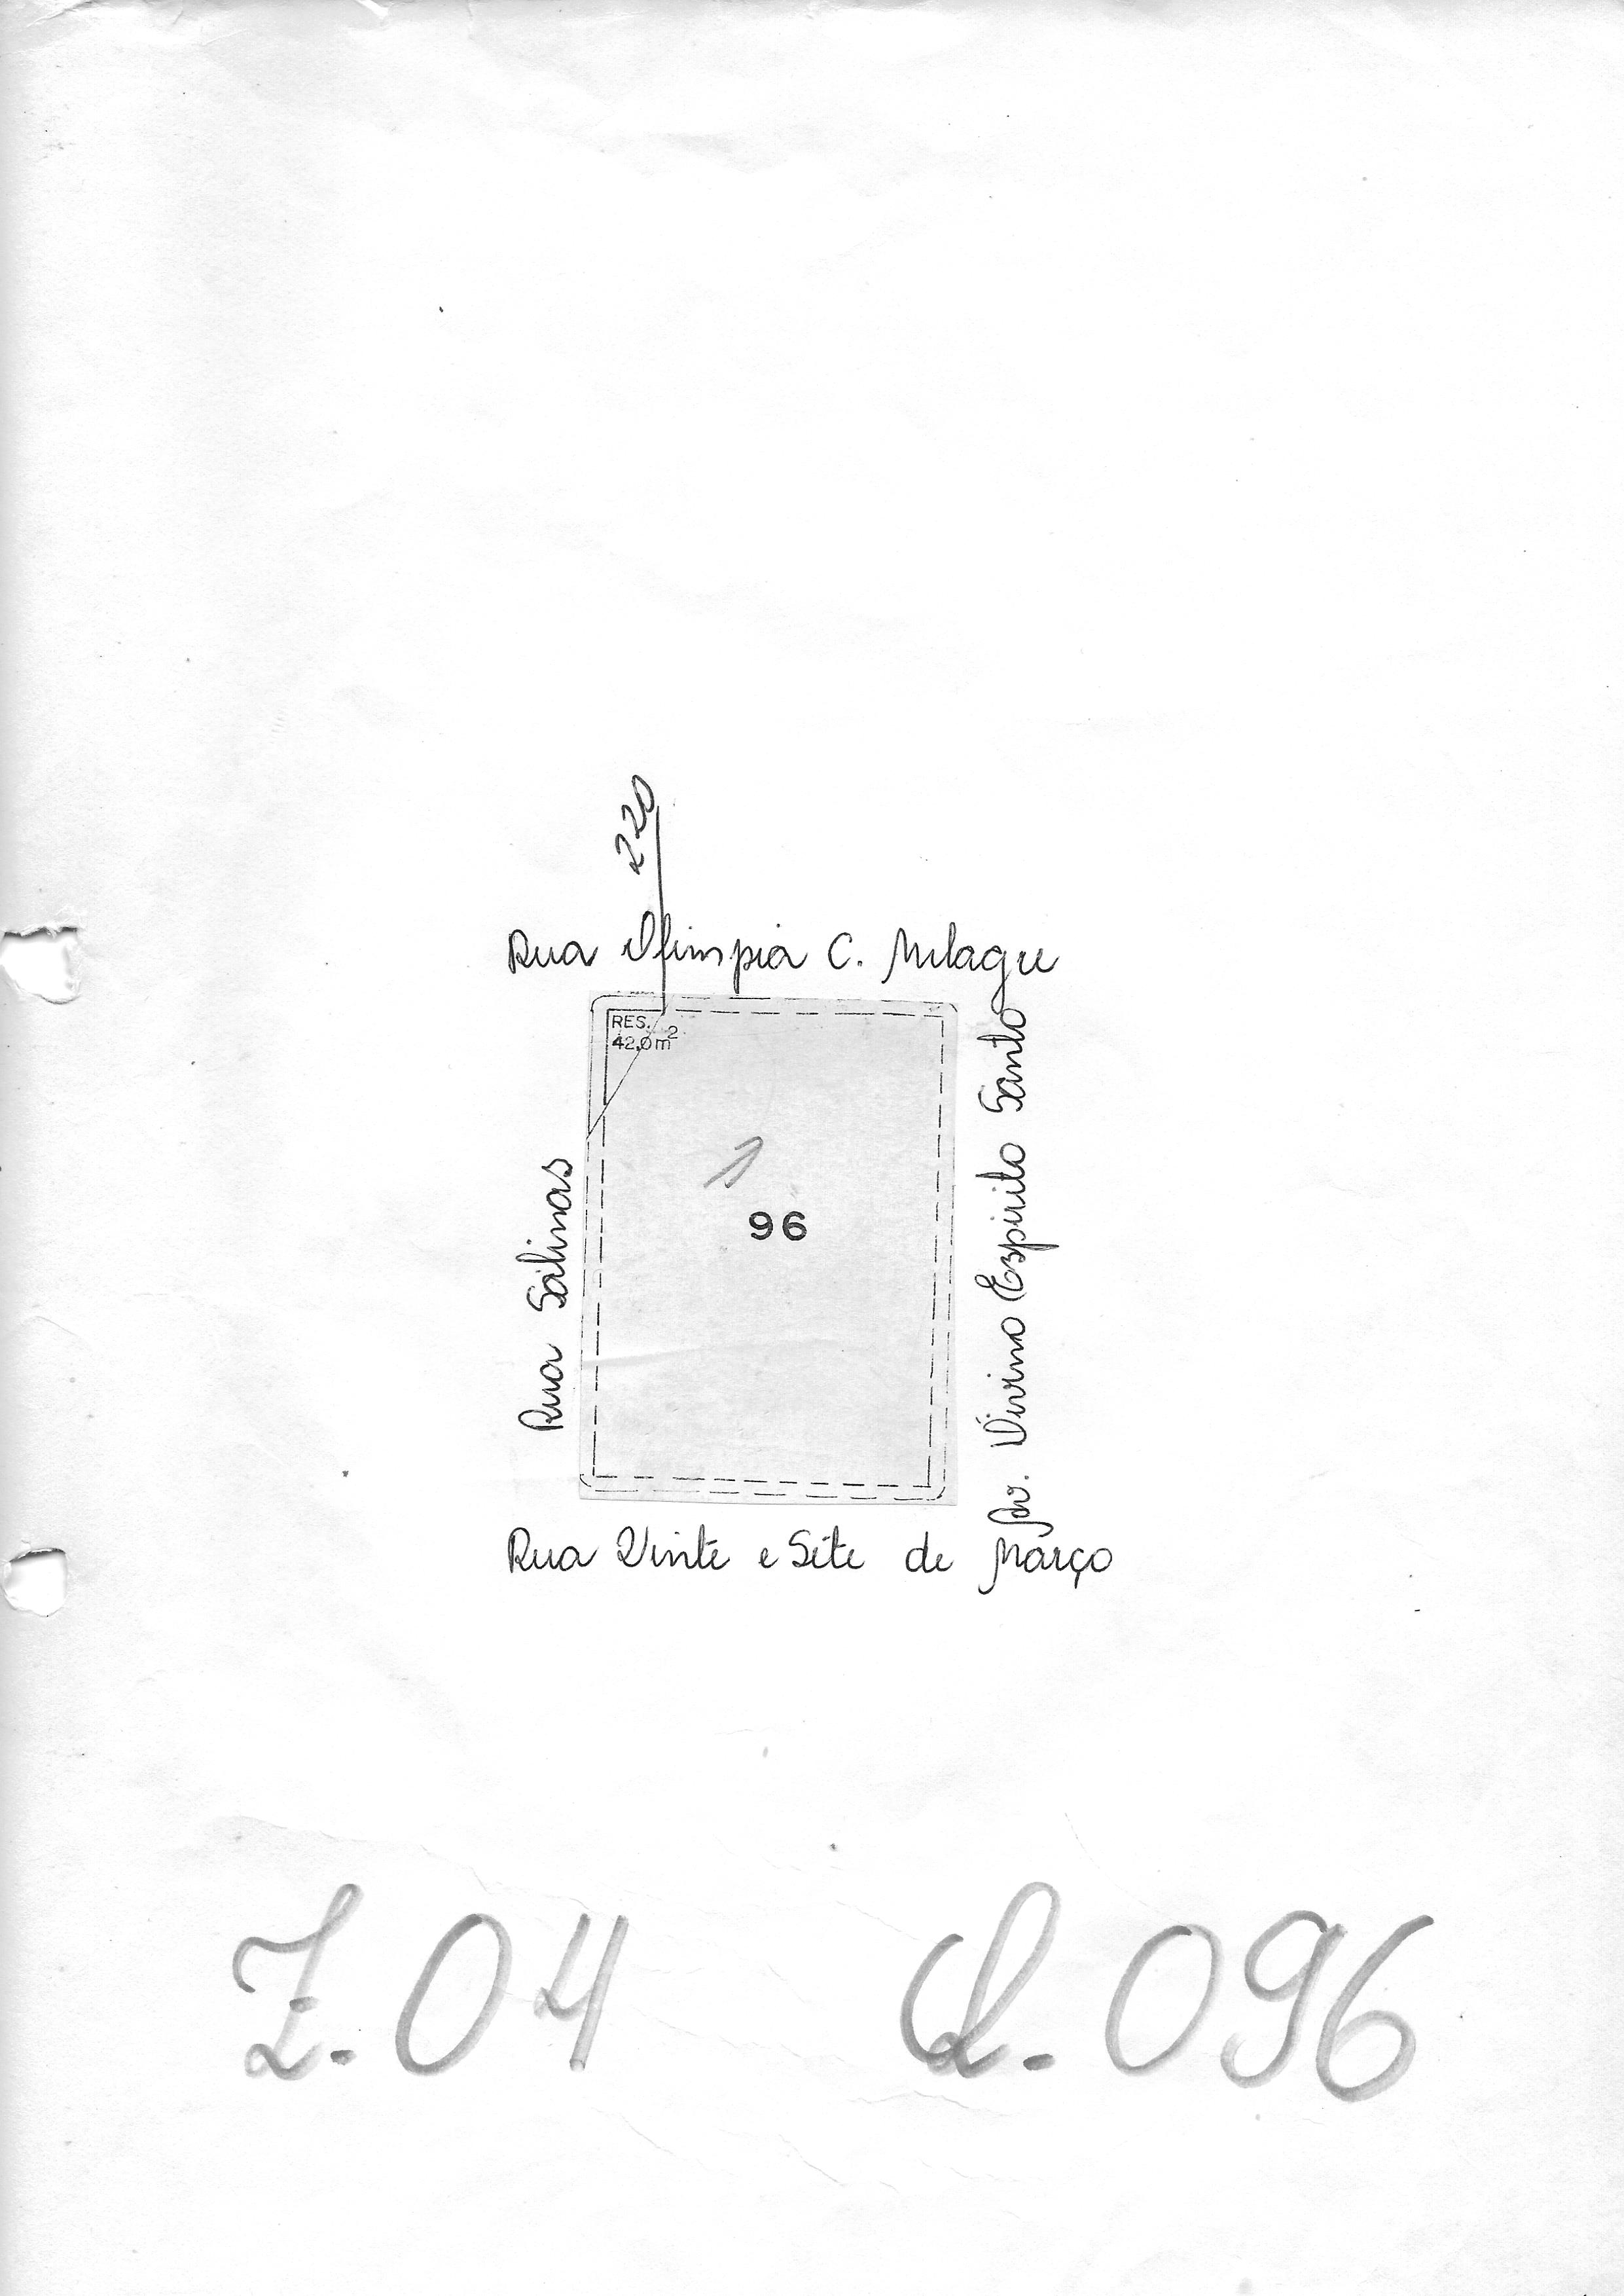 220
Rua Olimpia C. Milagre
RES.
42,0m²
1
96
Rua Salinas
Av. Divino Espirito Santo
Rua Vinte e Sete de Março
Z.04
Q.096